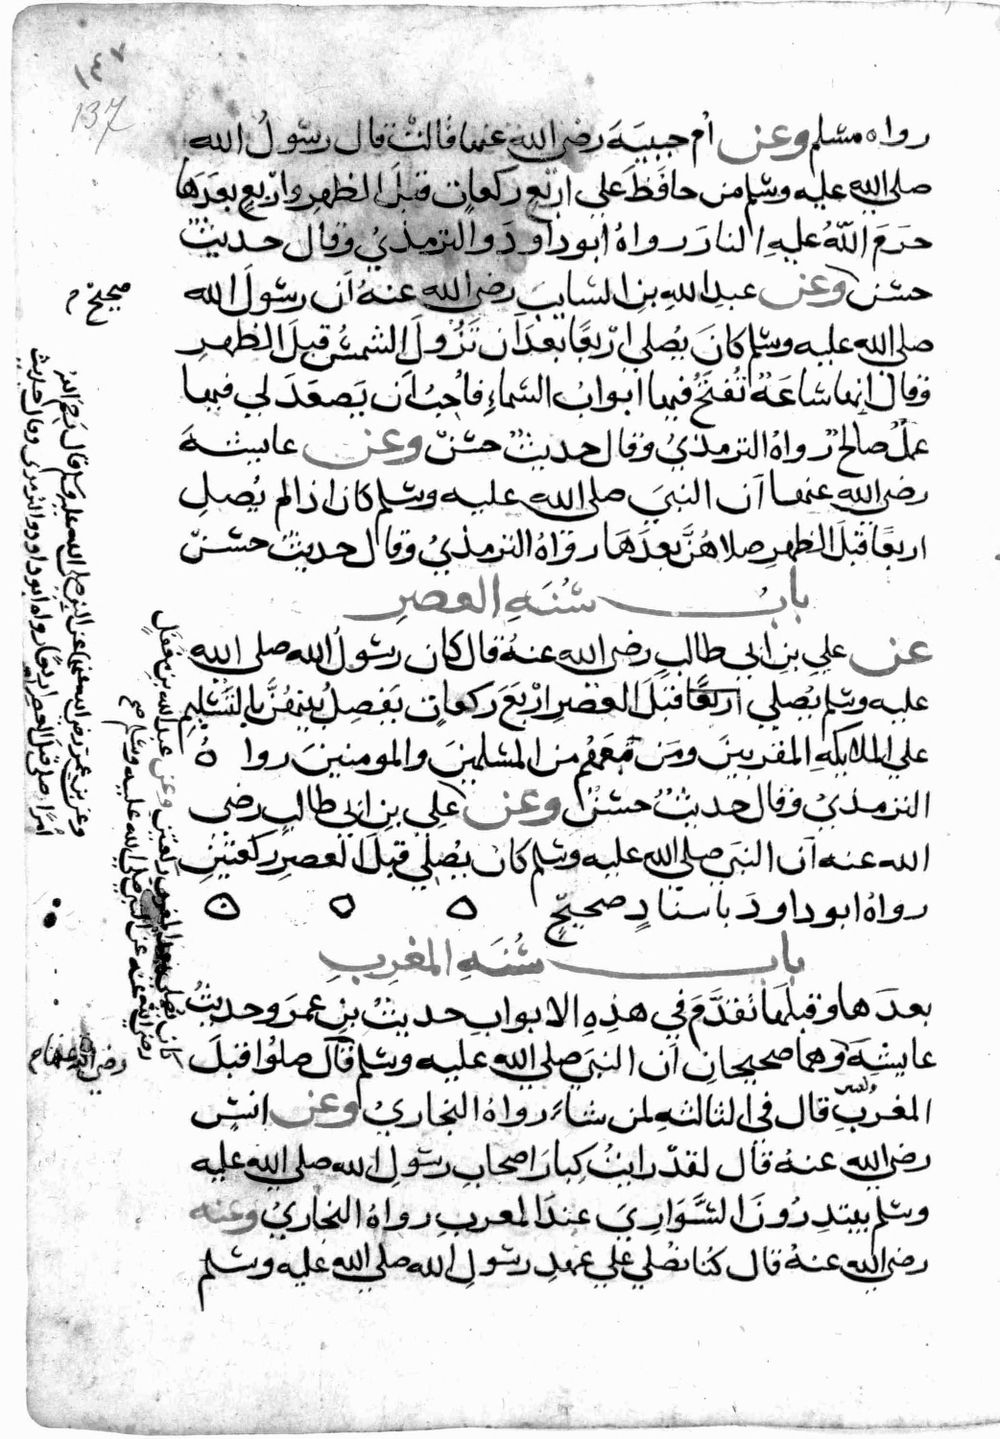 ١٤٧
137
رواه مسلم وعن أم حبيبة رضي الله عنها قالت قال رسول الله
صلي الله عليه وسلم من حافظ علي اربع ركعات قبل الظهر واربع بعدها
حرم الله عليه النار رواه ابو داود والترمذي وقال حديث
حسن وعن عبد الله بن السايب رضي الله عنه أن رسول الله
صلي الله عليه وسلم كان يصلي اربعا بعد أن تزول الشمس قبل الظهر
وقال انها ساعة تفتح فيها ابواب السماء فاحب أن يصعد لي فيها
عمل صالح رواه الترمذي وقال حديث حسن وعن عايشة
رضي الله عنها أن النبي صلي الله عليه وسلم كان اذا لم يصل
اربعا قبل الظهر صلاهن بعدها رواه الترمذي وقال حديث حسن
باب سنة العصر
عن علي بن ابي طالب رضي الله عنه قال كان رسول الله صلي الله
عليه وسلم يصلي اربعا قبل العصر اربع ركعات يفصل بينهن بالتسليم
علي الملايكة المقربين ومن معهم من المسلمين والمومنين روا ه
الترمذي وقال حديث حسن وعن علي بن ابي طالب رضي
الله عنه أن النبي صلي الله عليه وسلم كان يصلي قبل العصر ركعتين
رواه ابو داود باسناد صحيح ه ه ه
باب سنة المغرب
بعدها وقبلها تقدم في هذه الابواب حديث بن عمر وحديث
عايشة وهما صحيحان أن النبي صلي الله عليه وسلم قال صلوا قبل
المغرب قال في الثالثة لمن شاء رواه البخاري وعن انس
رضي الله عنه قال لقد رايت كبار اصحاب رسول الله صلي الله عليه
وسلم يبتدرون السواري عند المغرب رواه البخاري وعنه
رضي الله عنه قال كنا نصلي علي عهد رسول الله صلي الله عليه وسلم
صحيح م
وعن بن عمر رضي الله عنهما عن النبي صلى الله عليه وسلم قال رحم الله
أمرا صلى قبل العصر اربعا رواه ابو داود والترمذي وقال حديث
وعن عبد الله بن مغفل
رضي الله عنه عن النبي صلي الله عليه وسلم صح
رضي الله عنها م